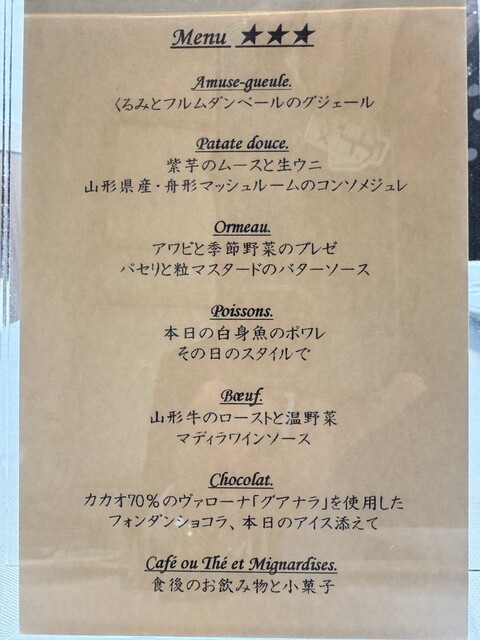 Menu ★★★
Amuse-gueule.
くるみとフルムダンベールのグジェール
Patate douce.
紫芋のムースと生ウニ
山形県産・舟形マッシュルームのコンソメジュレ
Ormeau.
アワビと季節野菜のブレゼ
パセリと粒マスタードのバターソース
Poissons.
本日の白身魚のポワレ
その日のスタイルで
Bœuf.
山形牛のローストと温野菜
マディラワインソース
Chocolat.
カカオ70%のヴァローナ「グアナラ」を使用した
フォンダンショコラ、本日のアイス添えて
Café ou Thé et Mignardises.
食後のお飲み物と小菓子